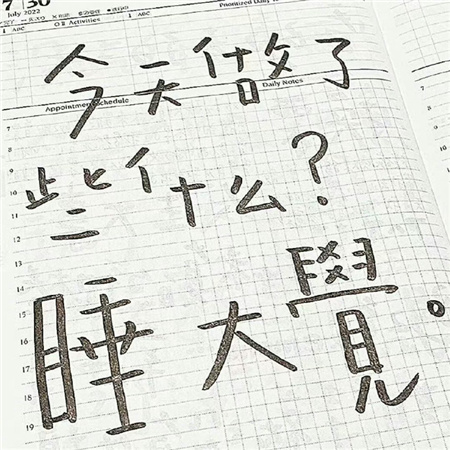 7 30
July 2022
Prioritized Daily
1 ABC
Activities
1 ABC
今天做了
Appointment Schedule
Daily Notes
些什么?
睡大覺。
7
8
9
10
11
12
13
14
15
16
17
18
19